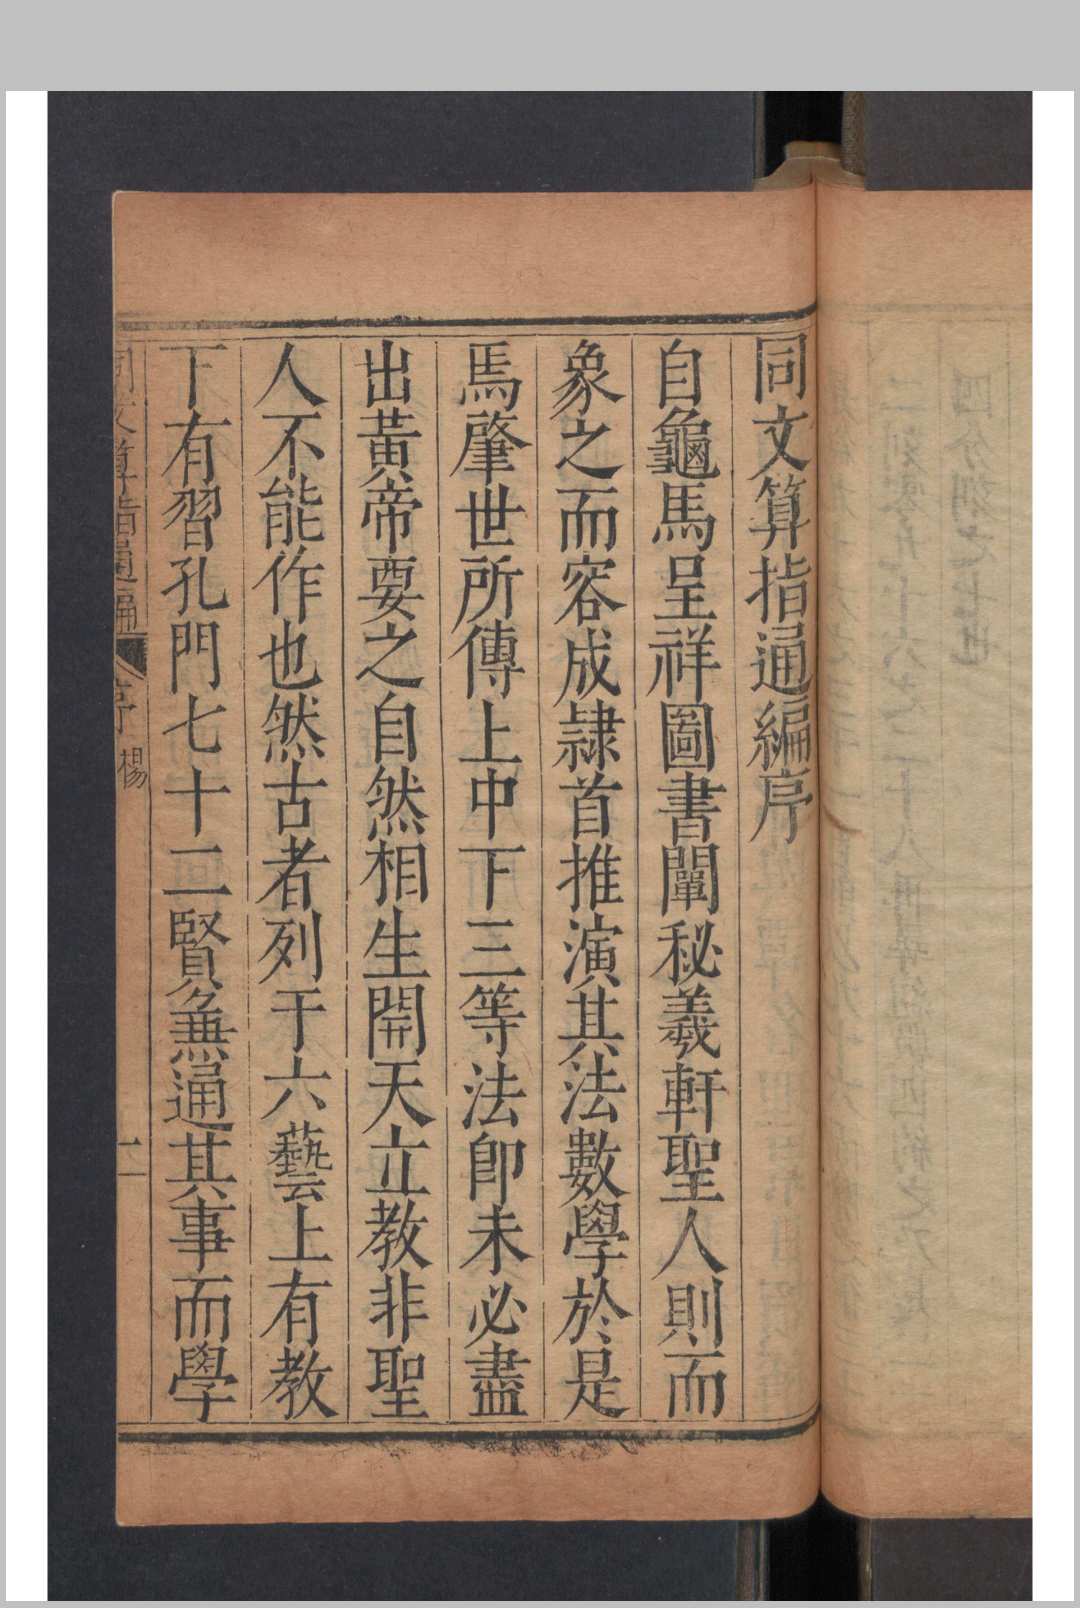 同文算指通編序
自龜馬呈祥圖書闡秘羲軒聖人則而
象之而容成隷首推演其法數學於是
焉肇世所傳上中下三等法卽未必盡
出黃帝要之自然相生開天立教非聖
人不能作也然古者列于六藝上有教
下有習孔門七十二賢兼通其事而學
同文算指通編 序 楊 一
四分刻之七也